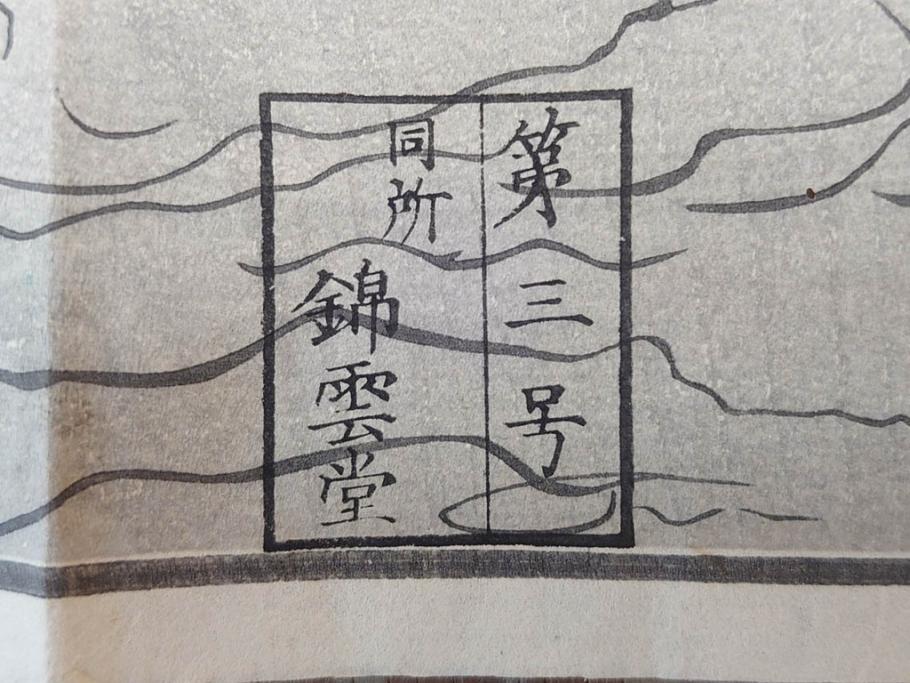 第三号
同所
錦雲堂